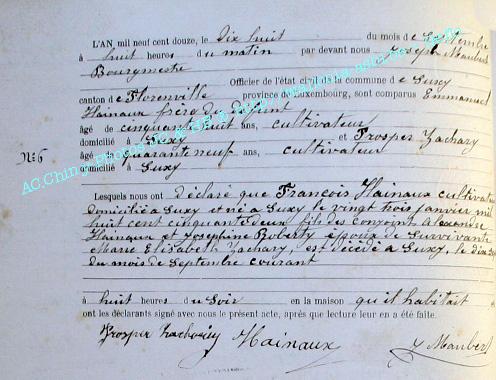 L'AN, mil neuf cent douze, le Dix huit du mois de Septembre
à huit heures du matin par devant nous Joseph
Bourgmestre
Officier de l'état civil de la commune de Suxy
canton de Florenville province de Luxembourg, sont comparus Emmanuel
Hainaux frère du défunt
âgé de cinquante huit ans, cultivateur
domicilié à Suxy et Prosper Zachary
No 6
âgé quarante neuf ans, cultivateur
domicilié à Suxy
Lesquels nous ont déclaré que François Hainaux cultivateur
domicilié à Suxy et né à Suxy le vingt trois janvier mil
huit cent cinquante deux fils des conjoints
Hainaux et Josephine époux de Survivante
Marie Elisabeth Zachary, est décédé à Suxy, le
du mois de Septembre courant
à huit heures du Soir en la maison qu'il habitait et
ont les déclarants signé avec nous le présent acte, après que lecture leur en a été faite.
Prosper Hainaux
AC.Ching Photos